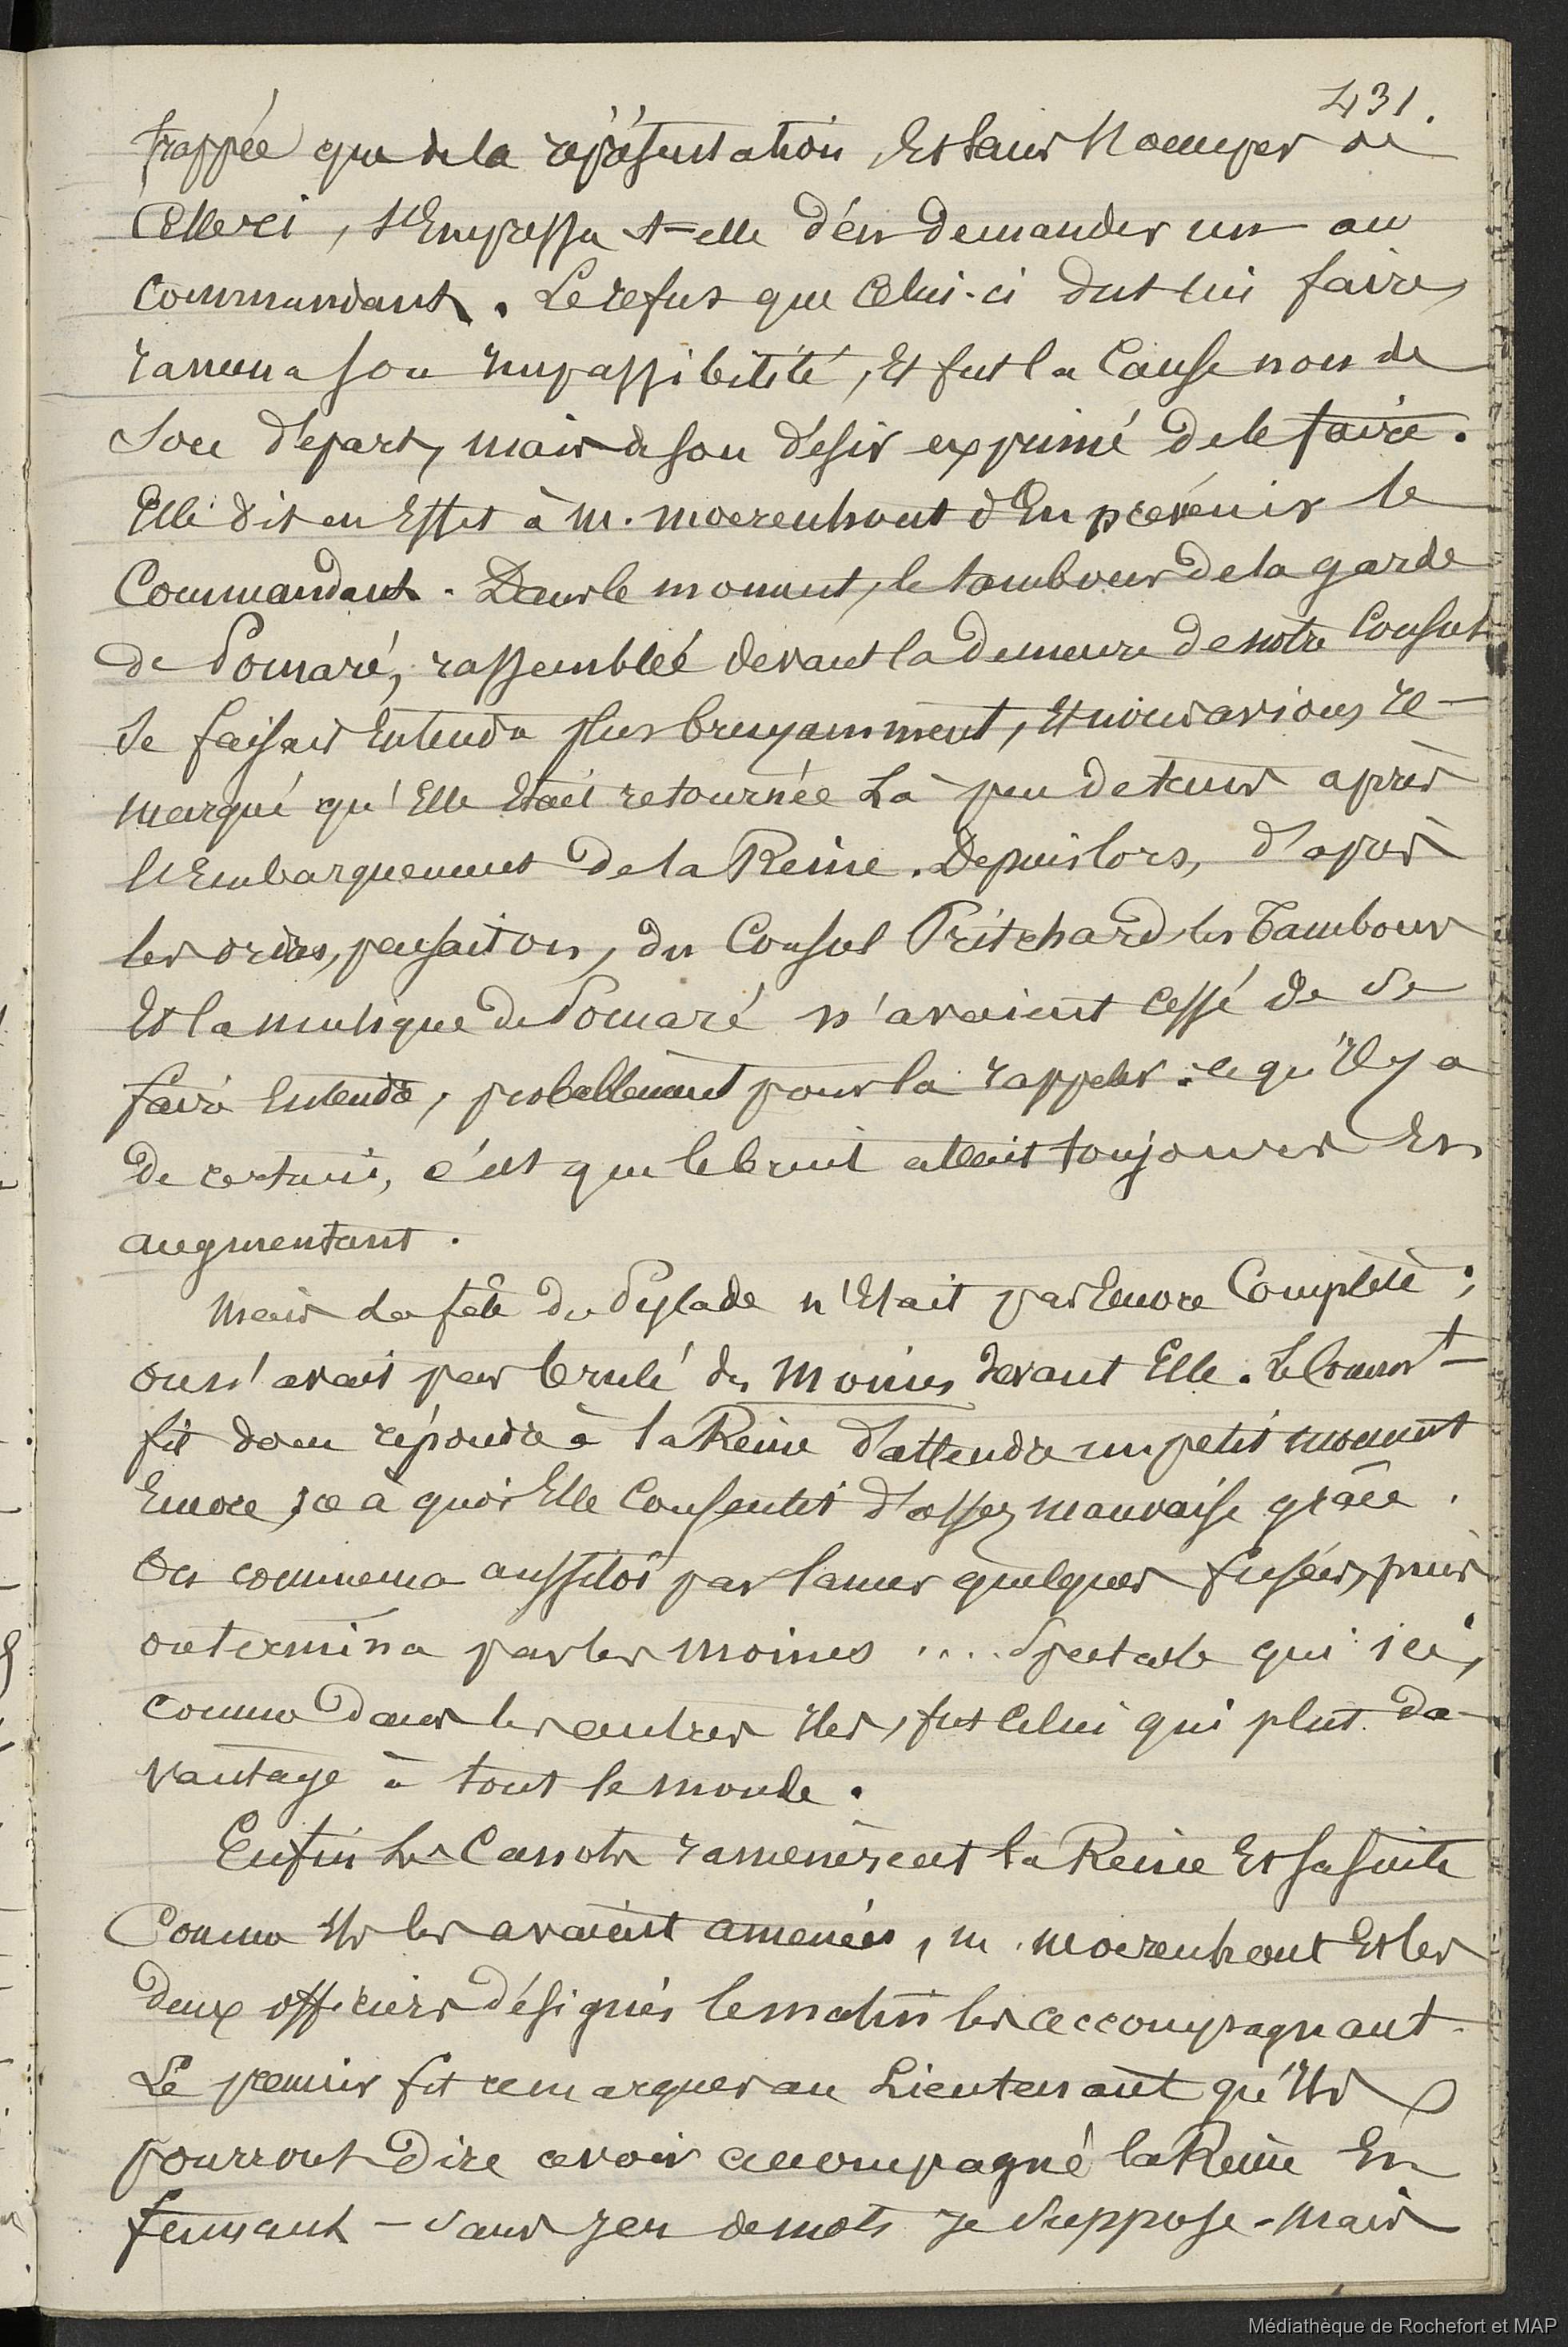 431.
frappée que de la représentation, Et sans s'occuper de
Celle ci, s'Empressa t-elle d'en demander un au
Commandant. Le refus que Celui-ci dut lui faire,
ramena son impassibilité, Et fut la Cause non de
Son départ, mais de son désir exprimé de le faire.
Elle dit en Effet à M. Moerenhout d'En prévenir le
Commandant. Dans le moment, le tambour de la garde
de Pomaré, rassemblée devant la demeure de notre Consul
se faisait Entendre plus bruyamment, Et nous avions re-
marqué qu'Elle était retournée Là peu de tems après
l'Embarquement De la Reine. Depuis lors, d'après
les ordres, pensait on, du Consul Pritchard, les Tambours
Et la musique de Pomaré n'avaient cessé de se
faire Entendre, probablement pour la rappeler : ce qu'Il y a
De certain, c'est que le bruit allait toujours En
augmentant.
Mais La fête du Pylade n'Etait pas Encore Complète ;
on n'avait pas brulé des Moines devant Elle. Le Comm.t
fit donc répondre à la Reine d'attendre un petit moment
Encore, ce à quoi Elle Consentit d'assez mauvaise grâce.
On commença aussitôt par lancer quelques fusées, puis
on termina par les moines .... Spectacle qui ici,
comme Dans les autres Iles, fut Celui qui plut da-
vantage à tout le monde.
Enfin les Canots ramenèrent la Reine Et sa suite
Comme Ils les avaient amenés, M. Moerenhout Et les
Deux officiers désignés le matin les accompagnant.
Le premier fit remarquer au Lieutenant qu'Ils
pourront Dire avoir accompagné la Reine En
femmant – sans jeu de mots je suppose - Mais
Médiathèque de Rochefort et MAP